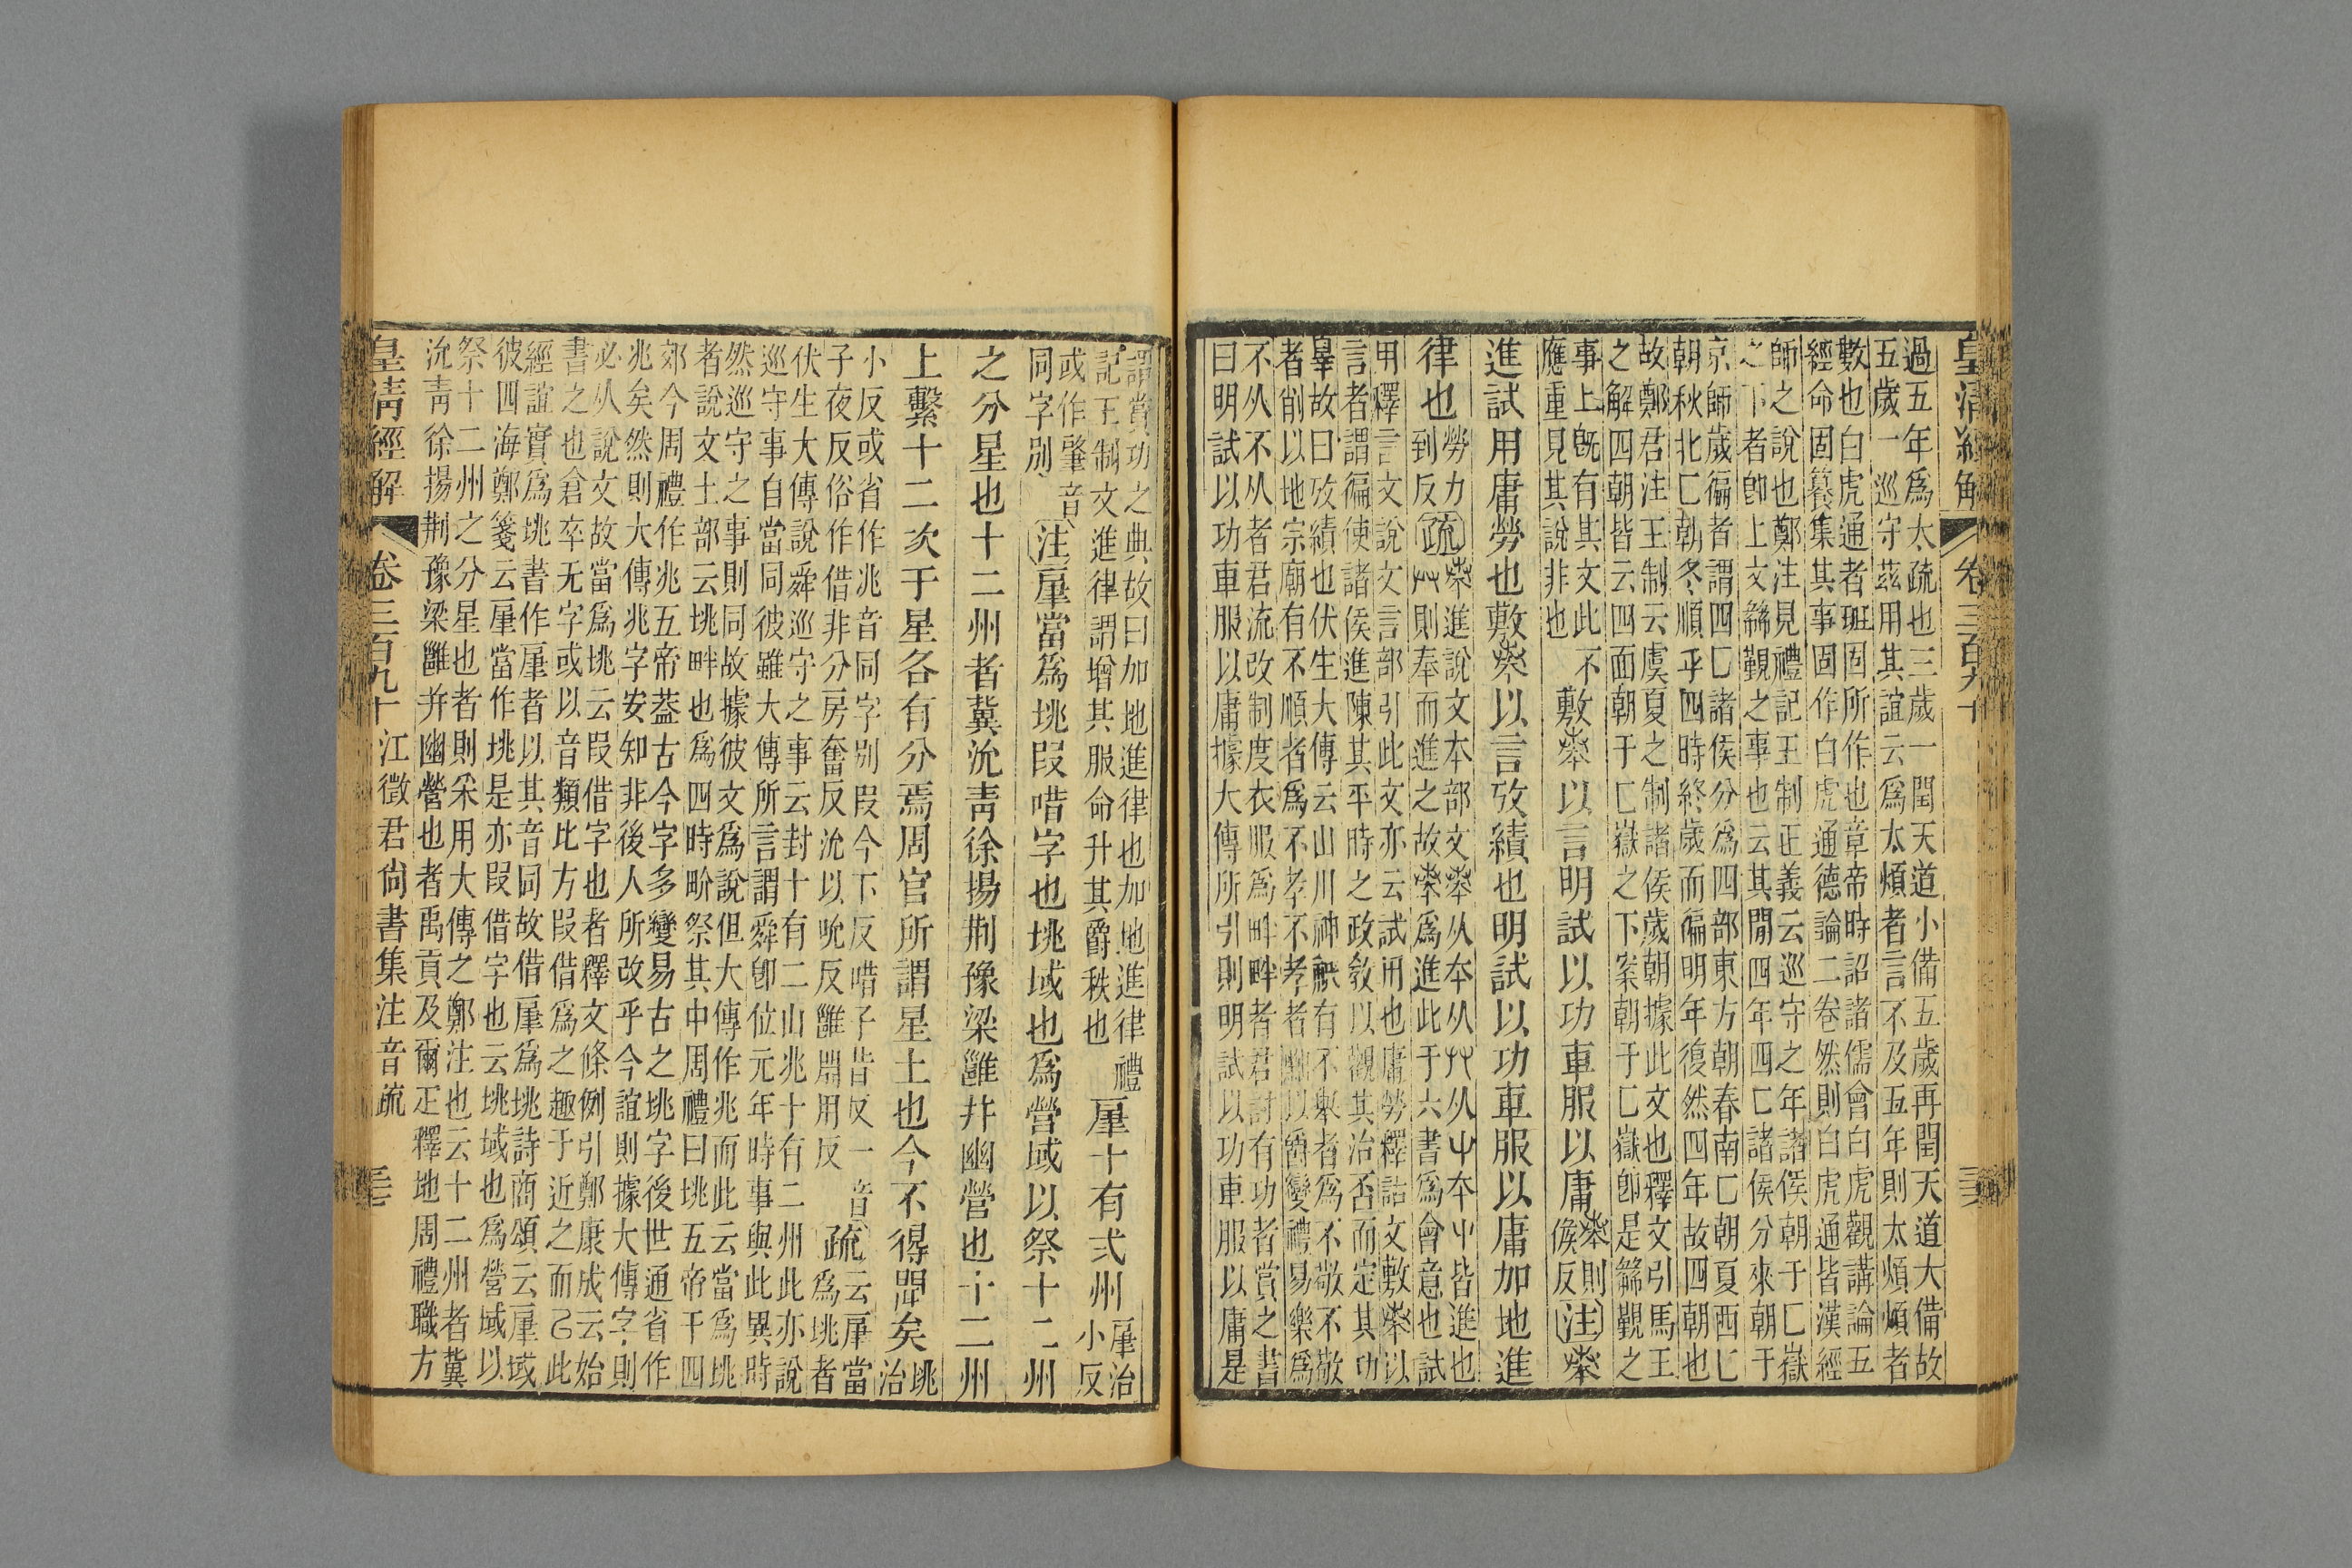 皇清經解 卷三百九十
過五年爲太疏也三歲一閏天道小備五歲再閏天道大備故
五歲一巡守茲用其誼云爲太煩者言不及五年則太煩煩者
數也白虎通者班固所作也章帝時詔諸儒會白虎觀講論五
經命固纂集其事固作白虎通德論二卷然則白虎通皆漢經
師之說也鄭注見禮記王制正義云巡守之年諸侯朝于匚嶽
之下者卽上文覲之事也云其閒四年四匚諸侯分來朝于
京師歲徧者謂四匚諸侯分爲四部東方朝春南匚朝夏西匚
朝秋北匚朝冬順乎四時終歲而徧明年復然四年故四朝也
故鄭君注王制云虞夏之制諸侯歲朝據此文也釋文引馬王
之解四朝皆云四面朝于匚嶽之下案朝于匚嶽卽是覲之
事上旣有其文此不
應重見其說非也
敷㚔以言明試以功車服以庸
㚔則
㑨反
注㚔
進試用庸勞也敷㚔以言攷績也明試以功車服以庸加地進
律也
勞力
到反
疏
㚔進說文本部文㚔从夲从𠬞从屮夲屮皆進也
𠬞則奉而進之故㚔爲進此于六書爲會意也試
用釋言文說文言部引此文亦云試用也庸勞釋詁文敷㚔以
言者謂徧使諸侯進陳其平時之政敎以觀其治否而定其功
辠故曰攷績也伏生大傳云山川神祇有不舉者爲不敬不敬
者削以地宗廟有不順者爲不孝不孝者黜以爵變禮易樂爲
不从不从者君流改制度衣服爲畔畔者君討有功者賞之書
曰明試以功車服以庸據大傳所引則明試以功車服以庸是
謂賞功之典故曰加地進律也加地進律禮
記王制文進律謂增其服命升其爵秩也
肁十有弍州
肁治
小反
或作肇音
同字別
注肁當爲垗叚喈字也垗域也爲營域以祭十二州
之分星也十二州者冀沇靑徐揚荆豫梁雝幷幽營也十二州
上繫十二次于星各有分焉周官所謂星土也今不得聞矣
垗
治
小反或省作兆音同字別叚今下反喈子昔反一音
子夜反俗作借非分房奮反沇以吮反雝𨳿用反
疏
云肁當
爲垗者
伏生大傳說舜巡守之事云封十有二山兆十有二州此亦說
巡守事自當同彼雖大傳所言謂舜卽位元年時事與此異時
然巡守之事則同故據彼文爲說但大傳作兆而此云當爲垗
者說文土部云垗畔也爲四時畍祭其中周禮曰垗五帝于四
郊今周禮作兆五帝葢古今字多變易古之垗字後世通省作
兆矣然則大傳兆字安知非後人所改乎今誼則據大傳字則
必从說文故當爲垗云叚借字也者釋文條例引鄭康成云始
書之也倉卒无字或以音類比方叚借爲之趣于近之而已此
經誼實爲垗書作肁者以其音同故借肁爲垗詩商頌云肁域
彼四海鄭箋云肁當作垗是亦叚借字也云垗域也爲營域以
祭十二州之分星也者則采用大傳之鄭注也云十二州者冀
沇靑徐揚荆豫梁雝幷幽營也者禹貢及爾疋釋地周禮職方
皇淸經解 卷三百九十 江徵君尙書集注音疏